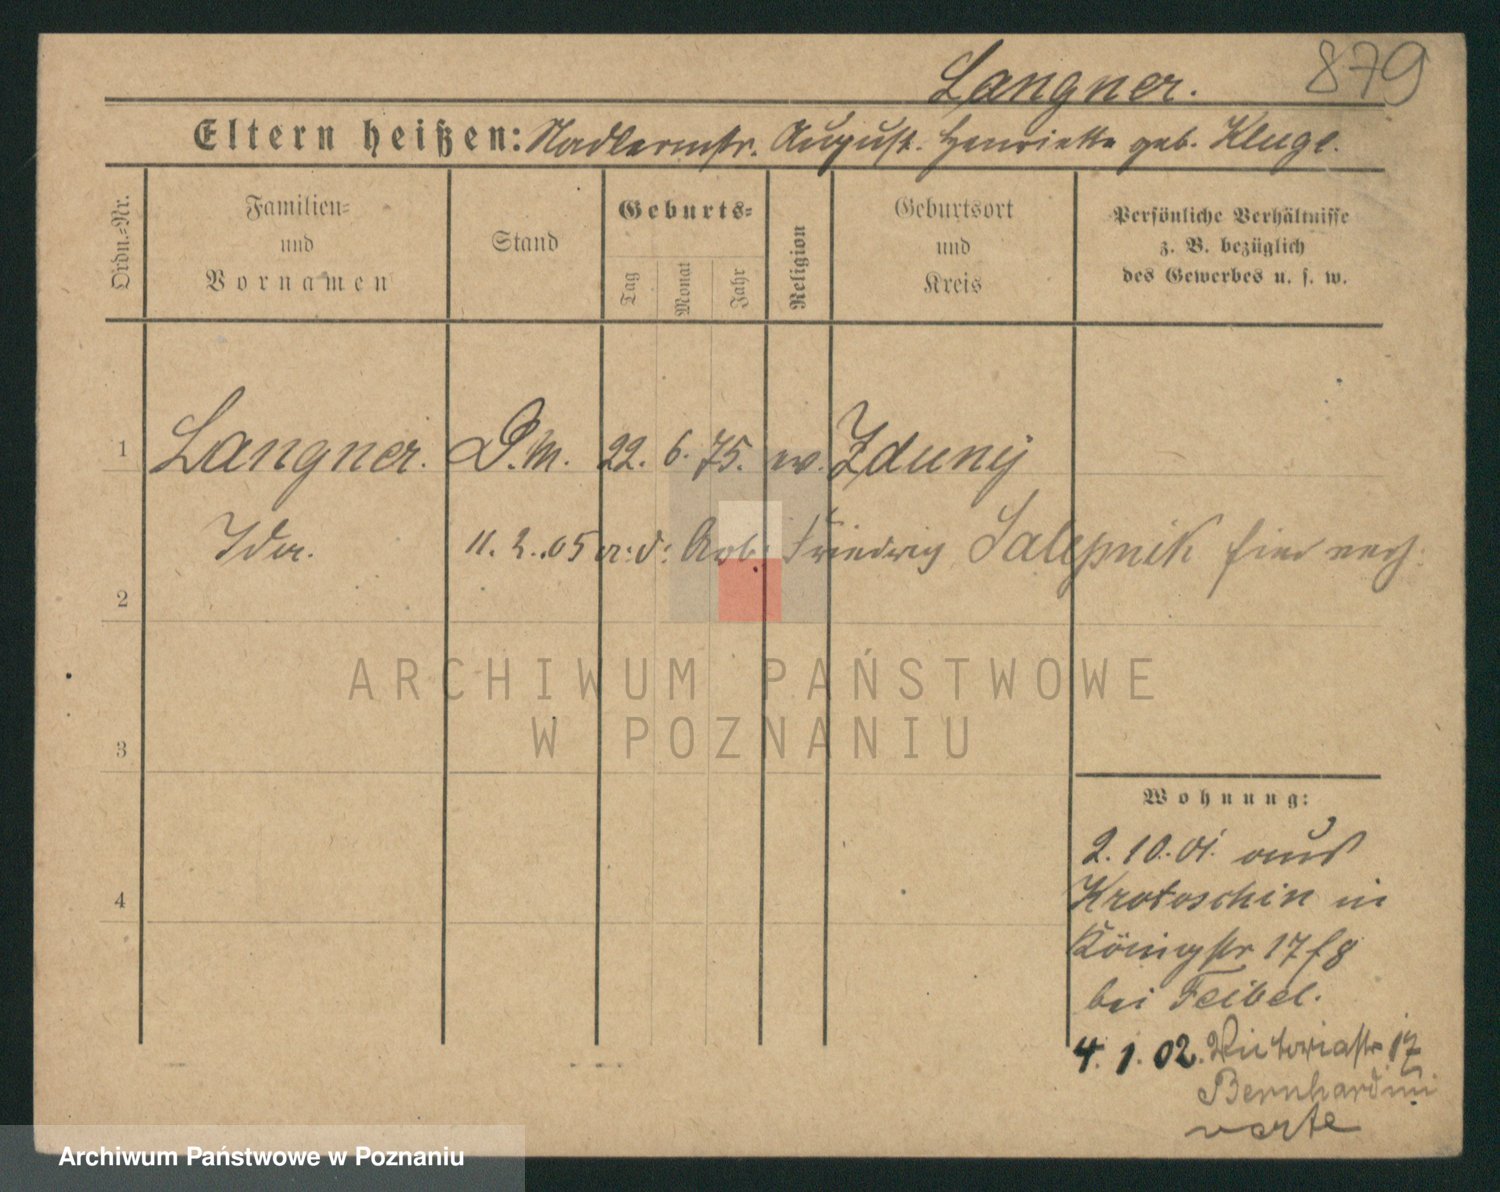 Langner. 879
Eltern heißen: Nadlermstr. August. Henriette geb. Kluge.
Ordn.=Nr.
Familien=
und
Vornamen
Stand
Geburts=
Tag
Monat
Jahr
Religion
Geburtsort
und
Kreis
Persönliche Verhältnisse
z. B. bezüglich
des Gewerbes u. s. w.
1 Langner. D.M. 22. 6. 75. ev. Zduny
Ida. 11. 2. 05 Arb. Friedrich Salepnik hier verh.
2
ARCHIWUM PAŃSTWOWE
W POZNANIU
3
Wohnung:
2. 10. 01. aus
4
Krotoschin in
Königstr 17 f 8
bei Feibel.
4. 1. 02. Victoriastr 17
Bernhardini
verte
Archiwum Państwowe w Poznaniu